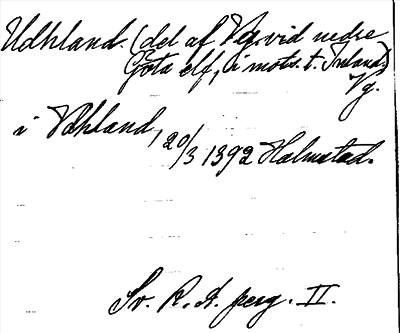 Udhland. (del af Vg. vid nedre
Göta elf, i mots. t. Inland)
Vg.
i Vdhland, 20/3 1392 Halmstad.
Sv. R. A. perg. II.